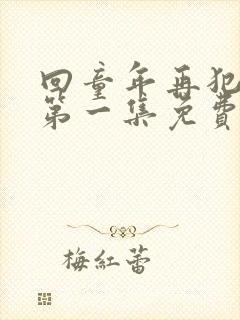 回童年再犯
第一集免費
梅紅蕾